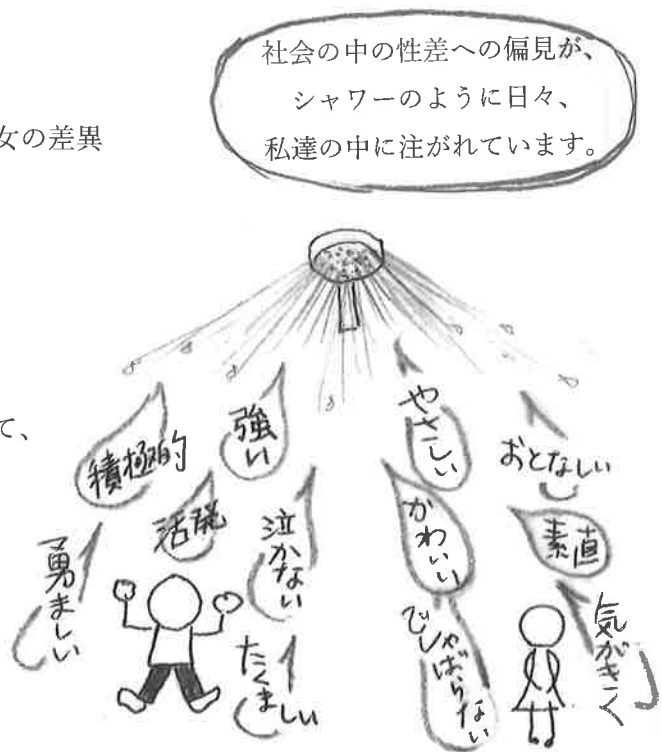 社会の中の性差への偏見が、
シャワーのように日々、
私達の中に注がれています。
女の差異
て、
積極的
強い
やさしい
おとなしい
勇ましい
活発
泣かない
かわいい
素直
たくましい
でしゃばらない
気がきく